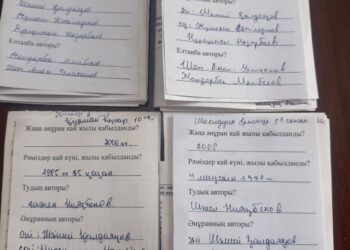 Шәмші Қалдаяқов
Жұмекен Нәжімеденов
Нұрсұлтан Назарбаев
Елтаңба авторы?
Жандарбек Мәлібеков
Шот-Аман Уәлиханов
әні: Шәмші Қалдаяқов
сөз: Жұмекен Нәжімеденов
Нұрсұлтан Назарбаев
Елтаңба авторы?
Шот-Аман Уәлиханов
Жандарбек Мәлібеков
Жаңа әнұран қай жылы қабылданды?
2006 ж
Рәміздер қай күні, жылы қабылданды?
Тудың авторы?
Шәкен Ниязбеков
Әнұранның авторы?
әні: Шәмші Қалдаяқов
Жаңа әнұран қай жылы қабылданды?
2006
Рәміздер қай күні, жылы қабылданды?
4 маусым 1992 ж
Тудың авторы?
Шәкен Ниязбеков
Әнұранның авторы?
әні Шәмші Қалдаяқов